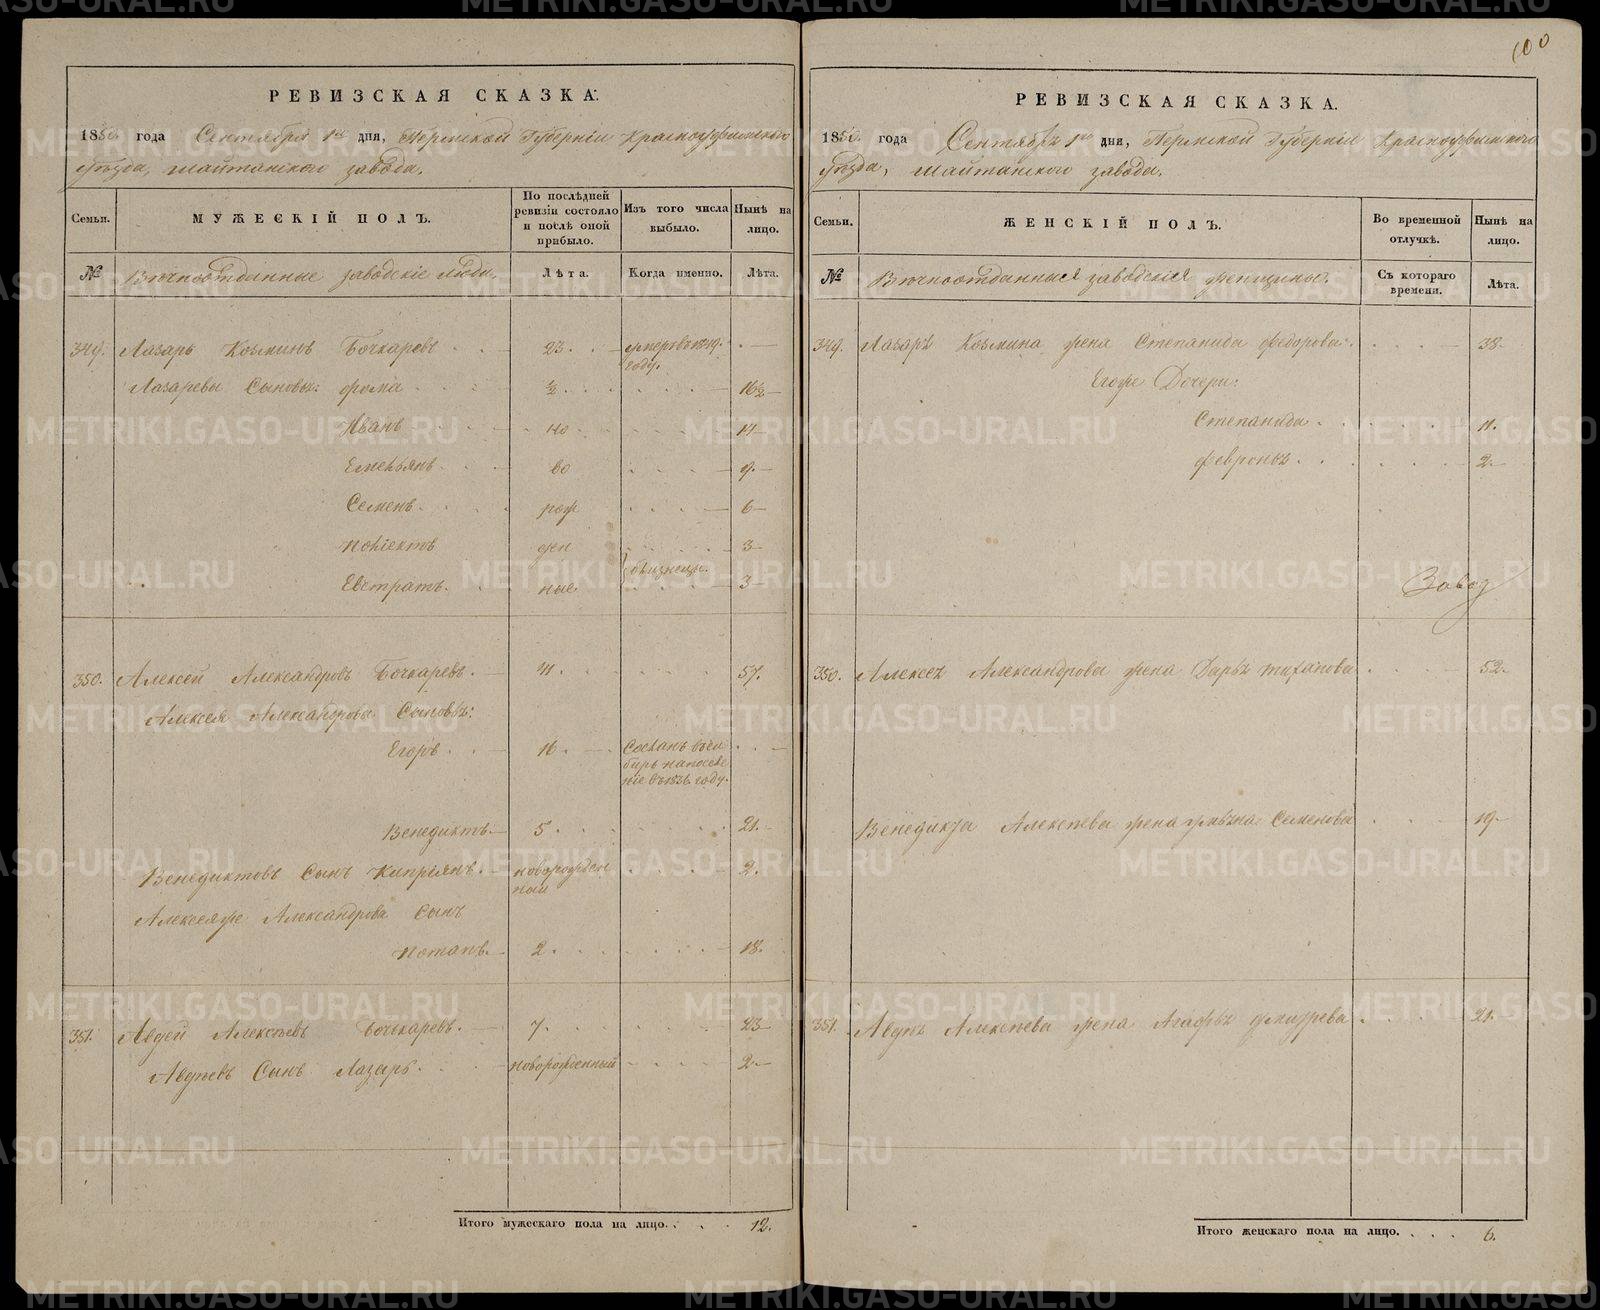 100
РЕВИЗСКАЯ СКАЗКА.
1850 года Сентября 1го дня, Пермской Губерніи Красноуфимскаго
уѣзда, Шайтанскаго завода.
Семьи.
МУЖЕСКІЙ ПОЛЪ.
По послѣдней ревизіи состояло и послѣ оной прибыло.
Изъ того числа выбыло.
Нынѣ на лицо.
№
Вѣчноотданные заводскіе люди.
Лѣта.
Когда именно.
Лѣта.
349. Лазарь Козминъ Бочкаревъ 23. умеръ въ 1849. году. —
Лазаревы Сыновья: Фома ½ 16½
Иванъ но 14
Емельянъ во 9.
Семенъ рож 6
Поліектъ ден 3
близнецы.
Евстратъ. ные 3
350. Алексей Александровъ Бочкаревъ. 41. 57.
Алексея Александрова Сыновья:
Егоръ 16. Сосланъ въ Си
бирь на поселе
ніе въ 1836 году.
Венедиктъ 5 21.
Венедиктовъ Сынъ Кипріянъ. новорожден
ный 2.
Алексея же Александрова Сынъ
Потапъ. 2 18.
351. Авдей Алексѣевъ Бочкаревъ. 7. 23
Авдѣевъ Сынъ Лазарь. новорожденный 2
Итого мужескаго пола на лицо. 12.
РЕВИЗСКАЯ СКАЗКА.
1850. года Сентября 1го дня, Пермской Губерніи Красноуфимскаго
уѣзда, Шайтанскаго завода.
Семьи.
ЖЕНСКІЙ ПОЛЪ.
Во временной отлучкѣ.
Нынѣ на лицо.
№
Вѣчноотданныя заводскія женщины.
Съ котораго времени.
Лѣта.
349. Лазаря Козмина жена Степанида Федорова. 38.
Егоже Дочери:
Степанида 11.
Февронья. 2
Завод
350. Алексея Александрова жена Дарья 52.
Венедикта Алексѣева жена Семенова 19
351. Авдѣя Алексѣева жена Агафья 21.
Итого женскаго пола на лицо. 6.
METRIKI.GASO-URAL.RU